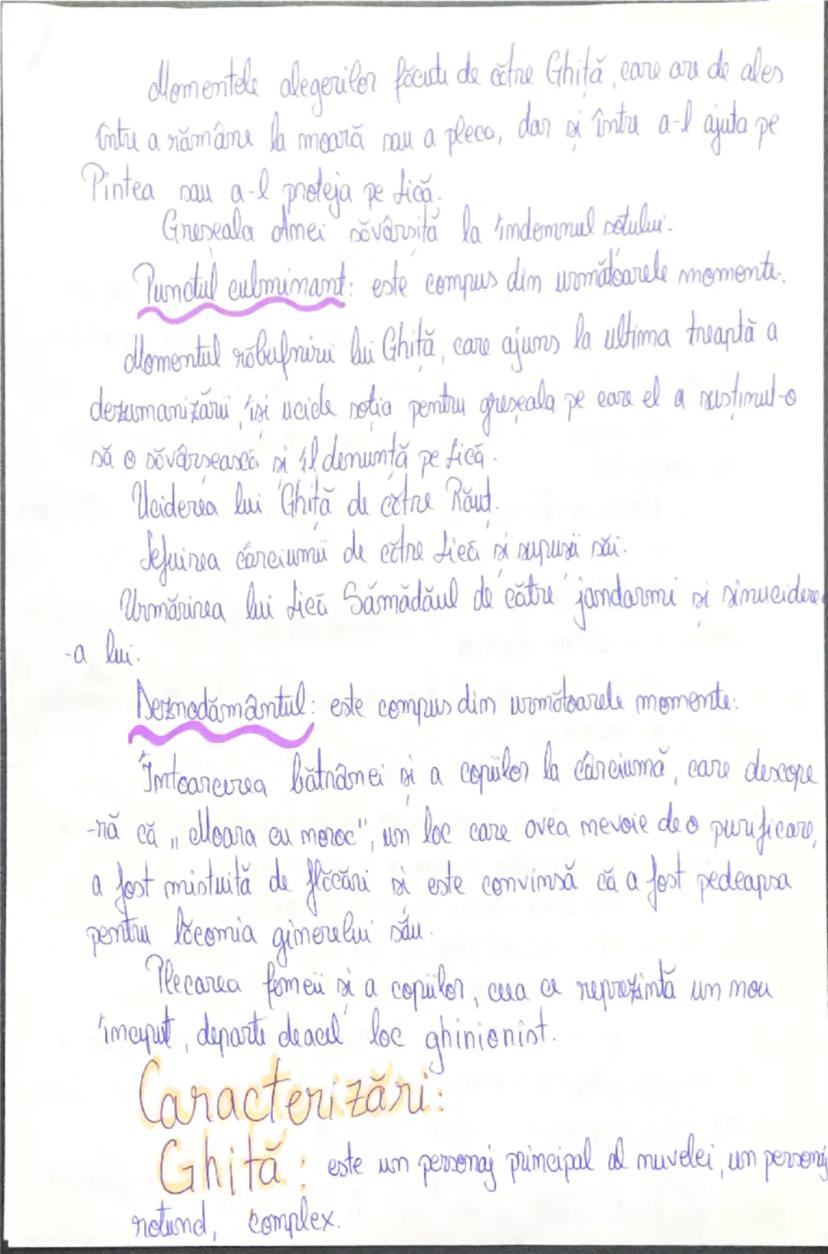 Momentele alegerilor făcute de către Ghiță, care are de ales
între a rămâne la moară sau a pleca, dar și între a-l ajuta pe
Pintea sau a-l proteja pe Lică.
Greșeala Anei săvârșită la îndemnul soțului.
Punctul culminant: este compus din următoarele momente.
Momentul răbufnirii lui Ghiță, care ajuns la ultima treaptă a
dezumanizării, își ucide soția pentru greșeala pe care el a susținut-o
să o săvârsească și îl denunță pe Lică.
Uciderea lui Ghiță de către Răuț.
Jefuirea cârciumii de către Lică și supușii săi.
Urmărirea lui Lică Sămădăul de către jandarmi și sinucidere
-a lui.
Deznodământul: este compus din următoarele momente:
Întoarcerea bătrânei și a copiilor la cârciumă, care descope
-ră că „Moara cu noroc", un loc care avea nevoie de o purificare,
a fost mistuită de flăcări și este convinsă că a fost pedeapsa
pentru lăcomia ginerelui său.
Plecarea femeii și a copiilor, ceea ce reprezintă un nou
început, departe de acel loc ghinionist.
Caracterizări:
Ghiță: este un personaj principal al nuvelei, un personaj
rotund, complex.